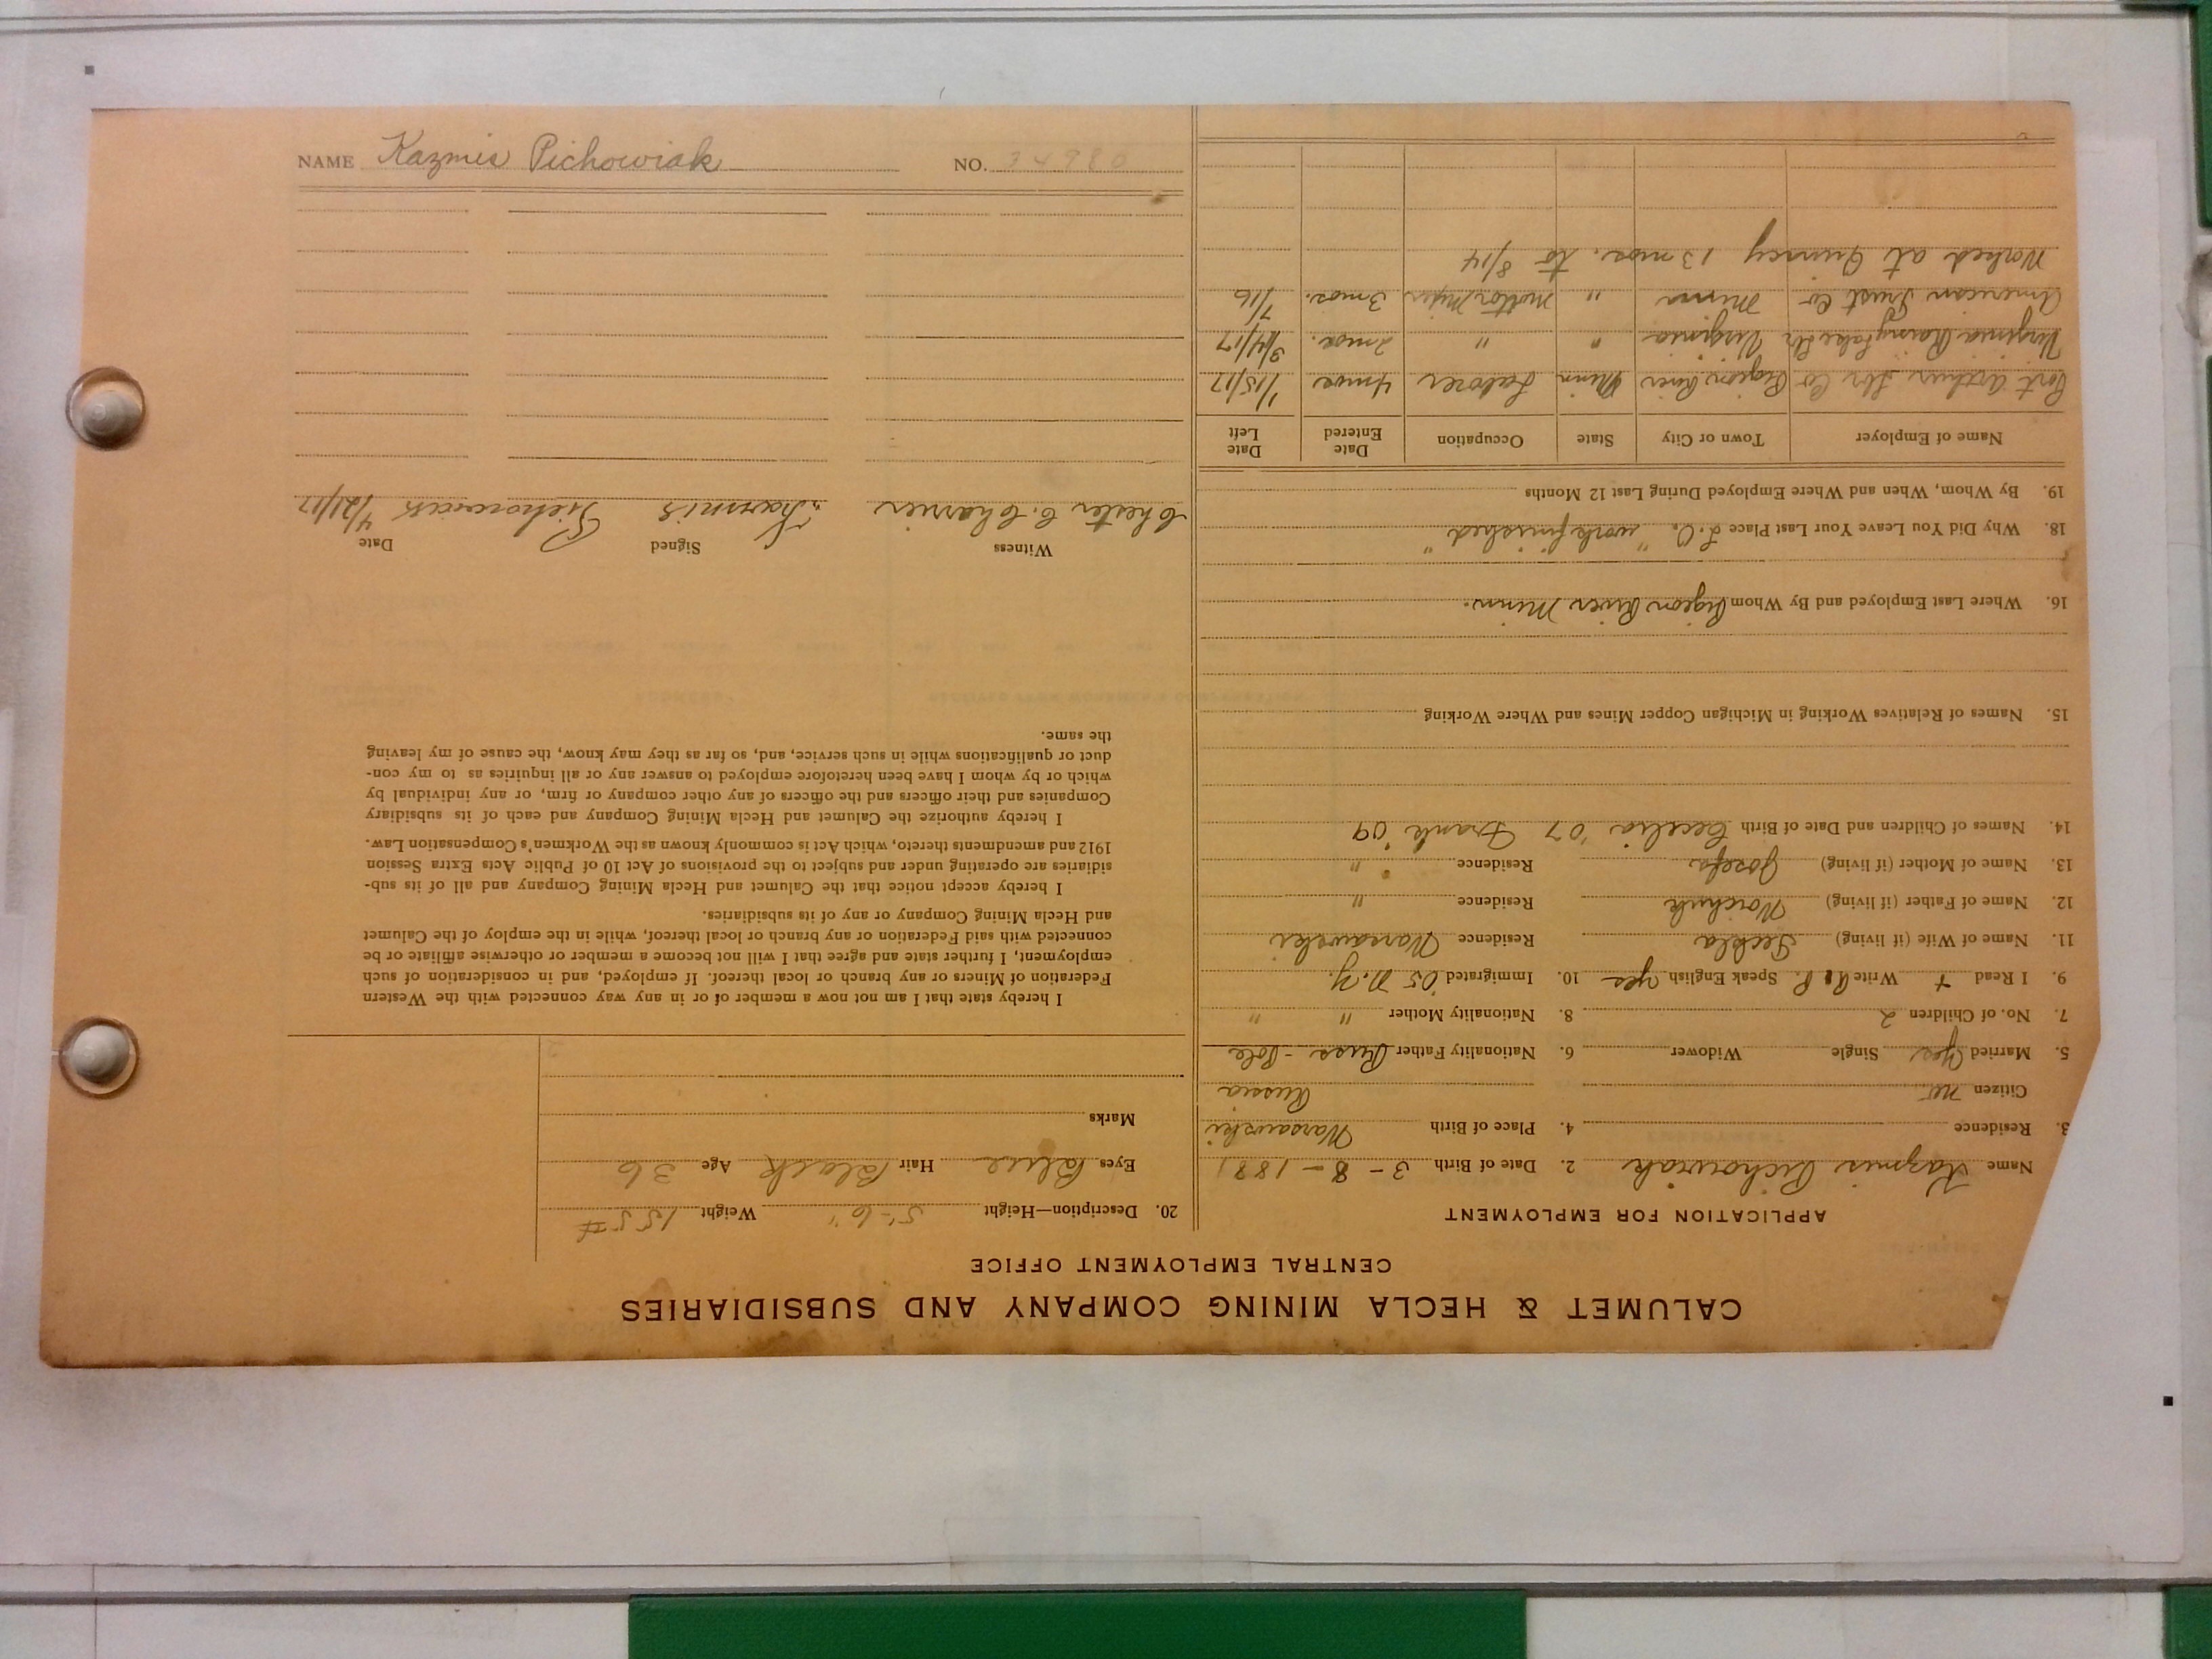 CALUMET & HECLA MINING COMPANY AND SUBSIDIARIES
CENTRAL EMPLOYMENT OFFICE
APPLICATION FOR EMPLOYMENT
Name Kazmis Pichowiak 2. Date of Birth 3-8-1881
3. Residence 4. Place of Birth Warsawski
Citizen no Russia
5. Married Yes Single Widower 6. Nationality Father Russ-Pole
7. No. of Children 2 8. Nationality Mother " "
9. I Read + Write R. P. Speak English yes 10. Immigrated '05 N.Y.
11. Name of Wife (if living) Tekla Residence Warsawski
12. Name of Father (if living) Residence "
13. Name of Mother (if living) Josefa Residence "
14. Names of Children and Date of Birth Cecelia '07 Frank '09
15. Names of Relatives Working in Michigan Copper Mines and Where Working
16. Where Last Employed and By Whom Pigeon River Minn.
18. Why Did You Leave Your Last Place L.O. "work finished"
19. By Whom, When and Where Employed During Last 12 Months
Name of Employer Town or City State Occupation Date Entered Date Left
Port Arthur Lbr Co Pigeon River Minn Laborer 4 mos. 1/15/17
Virginia Rainy Lake Lbr Virginia " " 2 mos. 3/14/17
American Trust Co Minn " 3 mos. 7/16
Worked at Quincy 13 mos. to 8/14
20. Description—Height 5'-6" Weight 155#
Eyes Blue Hair Black Age 36
Marks
I hereby state that I am not now a member of or in any way connected with the Western
Federation of Miners or any branch or local thereof. If employed, and in consideration of such
employment, I further state and agree that I will not become a member or otherwise affiliate or be
connected with said Federation or any branch or local thereof, while in the employ of the Calumet
and Hecla Mining Company or any of its subsidiaries.
I hereby accept notice that the Calumet and Hecla Mining Company and all of its sub-
sidiaries are operating under and subject to the provisions of Act 10 of Public Acts Extra Session
1912 and amendments thereto, which Act is commonly known as the Workmen's Compensation Law.
I hereby authorize the Calumet and Hecla Mining Company and each of its subsidiary
Companies and their officers and the officers of any other company or firm, or any individual by
which or by whom I have been heretofore employed to answer any or all inquiries as to my con-
duct or qualifications while in such service, and, so far as they may know, the cause of my leaving
the same.
Witness Signed Date
Chester C. Charrier Kazmis Pichowiak 4/21/17
NAME Kazmis Pichowiak NO. 34980